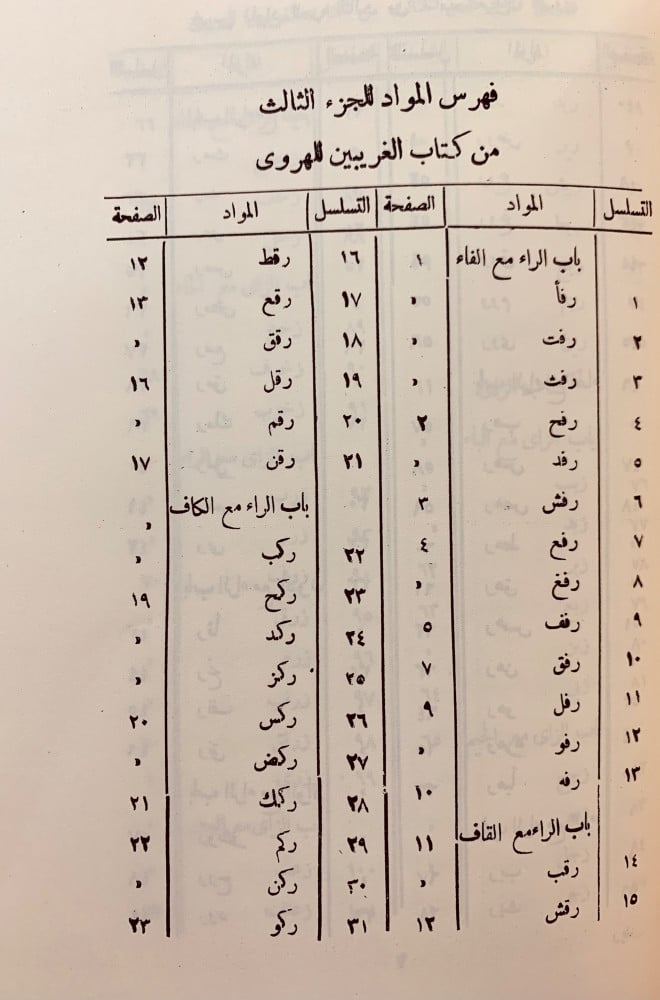 فهرس المواد للجزء الثالث
من كتاب الغريبين للهروى
التسلسل المواد الصفحة التسلسل المواد الصفحة
باب الراء مع الفاء ١ ١٦ رقط ١٢
١ رفأ » ١٧ رقع ١٣
٢ رفت » ١٨ رقق »
٣ رفث » ١٩ رقل ١٦
٤ رفح ٢ ٢٠ رقم »
٥ رفد » ٢١ رقن ١٧
٦ رفش ٣ باب الراء مع الكاف »
٧ رفع ٤ ٢٢ ركب »
٨ رفغ » ٢٣ ركح ١٩
٩ رفف ٥ ٢٤ ركد »
١٠ رفق ٧ ٢٥ ركز »
١١ رفل ٩ ٢٦ ركس ٢٠
١٢ رفو » ٢٧ ركض »
١٣ رفه ١٠ ٢٨ ركك ٢١
باب الراء مع القاف ١١ ٢٩ ركم ٢٢
١٤ رقب » ٣٠ ركن »
١٥ رقش ١٢ ٣١ ركو ٢٣